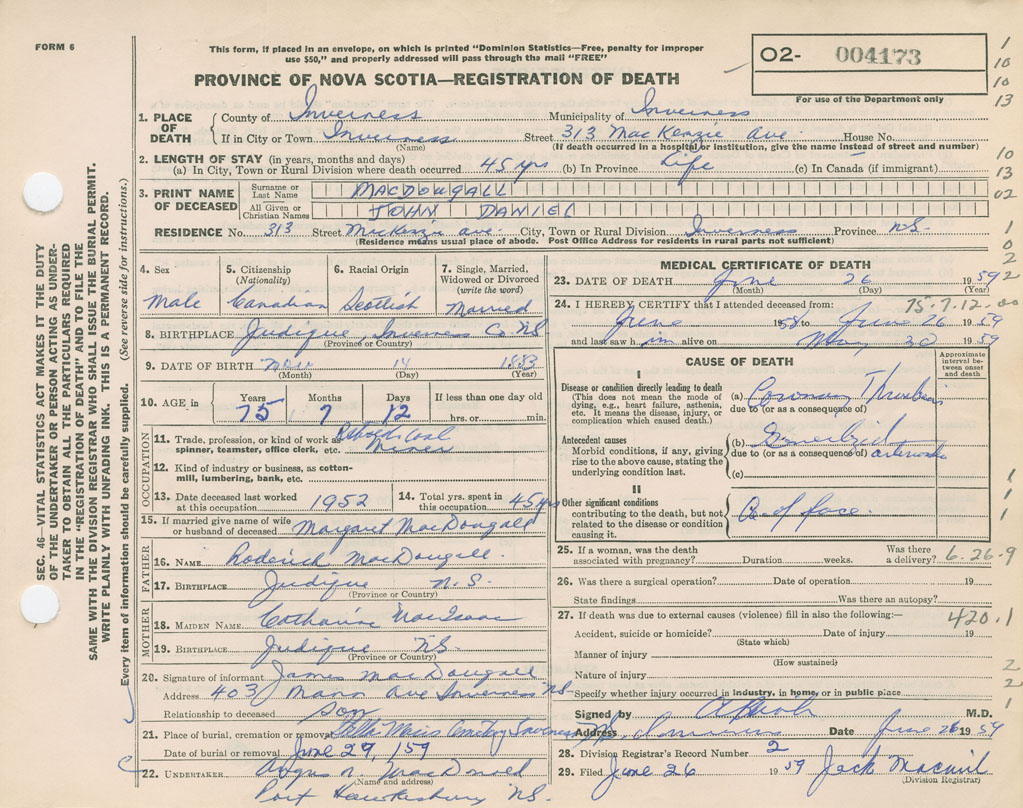 FORM 6
This form, if placed in an envelope, on which is printed "Dominion Statistics—Free, penalty for improper
use $50," and properly addressed will pass through the mail "FREE"
PROVINCE OF NOVA SCOTIA—REGISTRATION OF DEATH
O2- 004173
For use of the Department only
1
10
10
13
10
13
02
1
0
2
2
1. PLACE OF DEATH County of Inverness Municipality of Inverness
If in City or Town Inverness Street 313 MacKenzie Ave House No.
(Name) (If death occurred in a hospital or institution, give the name instead of street and number)
2. LENGTH OF STAY (in years, months and days)
(a) In City, Town or Rural Division where death occurred 45 yrs (b) In Province Life (c) In Canada (if immigrant)
3. PRINT NAME OF DECEASED Surname or Last Name MACDOUGALL
All Given or Christian Names JOHN DANIEL
RESIDENCE No. 313 Street MacKenzie ave. City, Town or Rural Division Inverness Province N.S.
(Residence means usual place of abode. Post Office Address for residents in rural parts not sufficient)
SEC. 46—VITAL STATISTICS ACT MAKES IT THE DUTY
OF THE UNDERTAKER OR PERSON ACTING AS UNDER-
TAKER TO OBTAIN ALL THE PARTICULARS REQUIRED
IN THE "REGISTRATION OF DEATH" AND TO FILE THE
SAME WITH THE DIVISION REGISTRAR WHO SHALL ISSUE THE BURIAL PERMIT.
WRITE PLAINLY WITH UNFADING INK. THIS IS A PERMANENT RECORD.
Every item of information should be carefully supplied. (See reverse side for instructions.)
4. Sex Male
5. Citizenship (Nationality) Canadian
6. Racial Origin Scottish
7. Single, Married, Widowed or Divorced (write the word) Married
8. BIRTHPLACE Judique, Inverness Co NS
(Province or Country)
9. DATE OF BIRTH Nov 14 1883
(Month) (Day) (Year)
10. AGE in Years 75 Months 7 Days 12 If less than one day old hrs. or min.
OCCUPATION
11. Trade, profession, or kind of work as spinner, teamster, office clerk, etc. Coal Miner
12. Kind of industry or business, as cotton-
mill, lumbering, bank, etc.
13. Date deceased last worked at this occupation 1952 14. Total yrs. spent in this occupation 45 yrs
15. If married give name of wife or husband of deceased Margaret MacDougall
FATHER
16. NAME Roderick MacDougall
17. BIRTHPLACE Judique N.S.
(Province or Country)
MOTHER
18. MAIDEN NAME Catharine MacIsaac
19. BIRTHPLACE Judique NS.
(Province or Country)
20. Signature of informant James MacDougall
Address 403 Mann Ave Inverness NS
Relationship to deceased son
21. Place of burial, cremation or removal Stella Maris Cemetery Inverness
Date of burial or removal June 29, 159
22. UNDERTAKER Angus N. MacDonald
(Name and address)
Port Hawkesbury NS.
MEDICAL CERTIFICATE OF DEATH
23. DATE OF DEATH June 26 1959
(Month) (Day) (Year)
24. I HEREBY CERTIFY that I attended deceased from: 75.7.12-00
June 1958 to June 26 1959
and last saw him alive on May 30 1959
CAUSE OF DEATH
Approximate interval be-
tween onset and death
I
Disease or condition directly leading to death (a) Coronary Thrombosis
(This does not mean the mode of dying, e.g., heart failure, asthenia, etc. It means the disease, injury, or complication which caused death.) due to (or as a consequence of)
Antecedent causes (b) Generalized
Morbid conditions, if any, giving rise to the above cause, stating the underlying condition last. due to (or as a consequence of)
(c)
II
Other significant conditions
contributing to the death, but not related to the disease or condition causing it. Ca of face.
25. If a woman, was the death associated with pregnancy? Duration weeks. Was there a delivery? 6.26.9
26. Was there a surgical operation? Date of operation 19
State findings Was there an autopsy?
27. If death was due to external causes (violence) fill in also the following:— 420.1
Accident, suicide or homicide? Date of injury 19
(State which)
Manner of injury
(How sustained)
Nature of injury
Specify whether injury occurred in industry, in home, or in public place
Signed by M.D.
Address Inverness Date June 26 1959
28. Division Registrar's Record Number 2
29. Filed June 26 1959 Jack MacNeil
(Division Registrar)
1
1
1
2
2
1